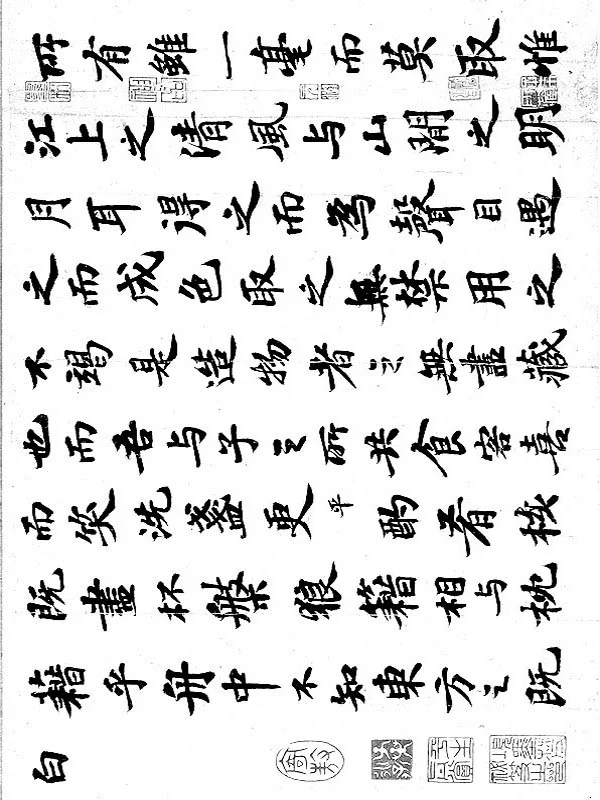 所有雖一毫而莫取惟
江上之清風与山間之明
月耳得之而為聲目遇
之而成色取之無禁用之
不竭是造物者之無盡藏
也而吾与子之所共食客喜
而笑洗盞更酌肴核
既盡杯盤狼籍相与枕
藉乎舟中不知東方之既
白